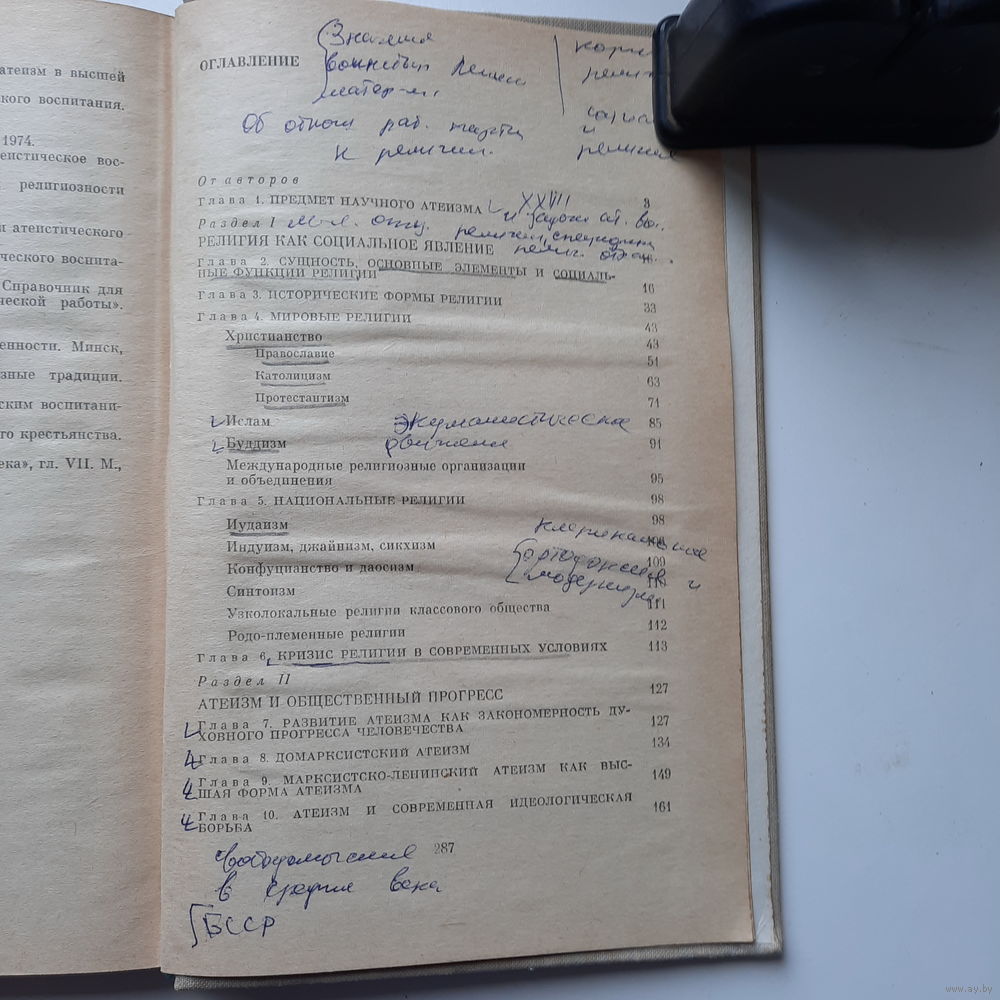 атеизм в высшей
кого воспитания.
1974.
еистическое вос-
религиозности
и атеистического
ческого воспита-
Справочник для
ческой работы».
енности. Минск,
зные традиции.
ским воспитани-
го крестьянства.
ека», гл. VII. М.,
Знамя
воинствую
матер-
Об отнош раб. партии
к религии.
религ
и
религия
ОГЛАВЛЕНИЕ
От авторов 3
Глава 1. ПРЕДМЕТ НАУЧНОГО АТЕИЗМА
XXVII
Раздел I
РЕЛИГИЯ КАК СОЦИАЛЬНОЕ ЯВЛЕНИЕ
Глава 2. СУЩНОСТЬ, ОСНОВНЫЕ ЭЛЕМЕНТЫ И СОЦИАЛЬ-
НЫЕ ФУНКЦИИ РЕЛИГИИ 16
Глава 3. ИСТОРИЧЕСКИЕ ФОРМЫ РЕЛИГИИ 33
Глава 4. МИРОВЫЕ РЕЛИГИИ 43
Христианство 43
Православие 51
Католицизм 63
Протестантизм 71
Ислам 85
Буддизм 91
движения
Международные религиозные организации
и объединения 95
Глава 5. НАЦИОНАЛЬНЫЕ РЕЛИГИИ 98
Иудаизм 98
Индуизм, джайнизм, сикхизм
Конфуцианство и даосизм 109
Синтоизм 110
Узколокальные религии классового общества 111
Родо-племенные религии 112
Глава 6. КРИЗИС РЕЛИГИИ В СОВРЕМЕННЫХ УСЛОВИЯХ 113
Раздел II
АТЕИЗМ И ОБЩЕСТВЕННЫЙ ПРОГРЕСС 127
Глава 7. РАЗВИТИЕ АТЕИЗМА КАК ЗАКОНОМЕРНОСТЬ ДУ-
ХОВНОГО ПРОГРЕССА ЧЕЛОВЕЧЕСТВА 127
Глава 8. ДОМАРКСИСТСКИЙ АТЕИЗМ 134
Глава 9. МАРКСИСТСКО-ЛЕНИНСКИЙ АТЕИЗМ КАК ВЫС-
ШАЯ ФОРМА АТЕИЗМА 149
Глава 10. АТЕИЗМ И СОВРЕМЕННАЯ ИДЕОЛОГИЧЕСКАЯ
БОРЬБА 161
287
свободомыслие
в средние века
БССР
www.ay.by